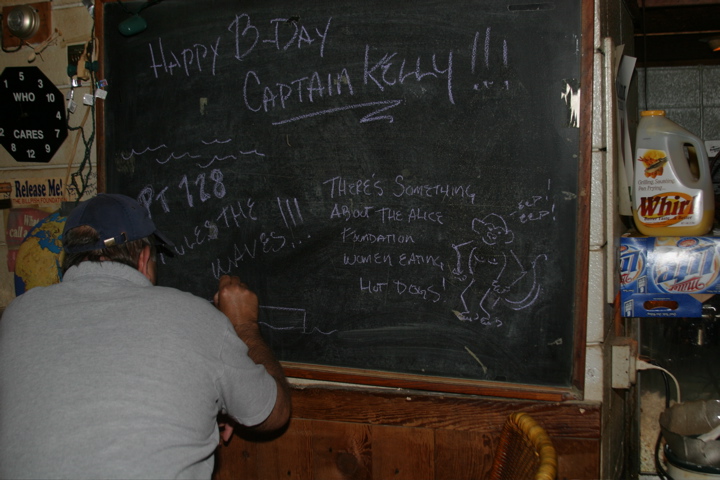 HAPPY B-DAY
CAPTAIN KELLY !!!
PT 128
RULES THE !!!
WAVES...
THERE'S SOMETHING
ABOUT THE ALICE
FOUNDATION
WOMEN EATING
HOT DOGS!
EEP!
EEP!
WHO
CARES
Release Me!
Whirl